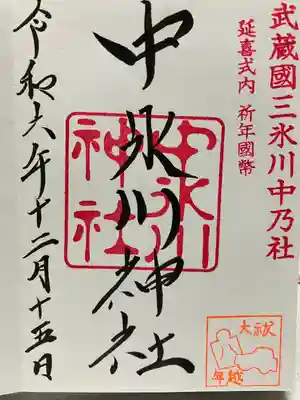 武蔵國三氷川中乃社
延喜式内 祈年國幣
中氷川神社
中氷川
神社
令和六年十二月十五日
大祓
年越